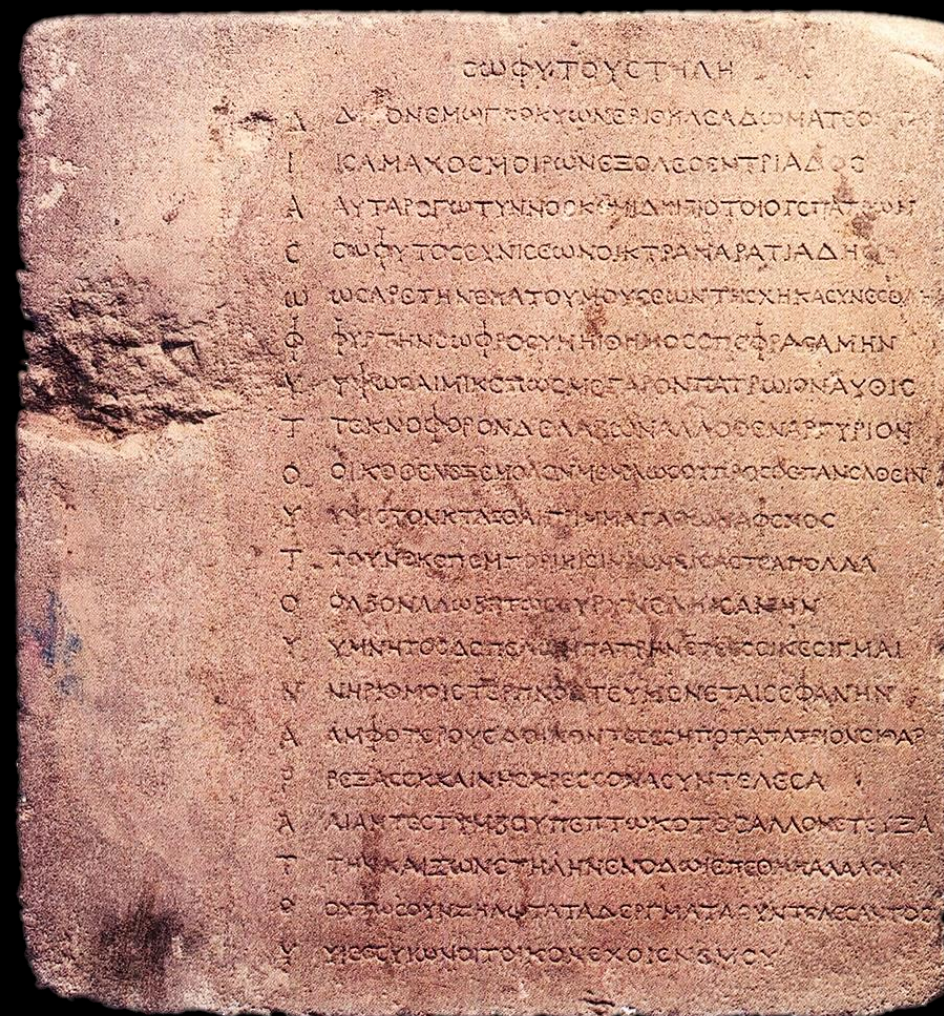 ϹΩΦΥΤΟΥϹΤΗΛΗ
Δ Δ ΟΝΕΜΩΓΚΟΚΥΩΝΕΡΙΘΗΛΕΑΔΩΜΑΤΕΟ
Ι ΙϹΑΜΑΧΟϹΜΟΙΡΩΝΕΞΟΛΕϹΕΝΤΡΙΑΔΟϹ
Α ΑΥΤΑΡΕΓΩΤΥΝΝΟϹΚΟΜΙΔΗΙΒΙΟΤΟΙΟΤΕΠΑΤΡΩΝ
Ϲ ϹΩΦΥΤΟϹΕΥΝΙϹΕΩΝΟΙΚΤΡΑΝΑΡΑΤΙΑΔΗϹ
Ω ΩϹΑΡΕΤΗΝΕΚΑΤΟΥΜΟΥϹΕΩΝΤΗϹΧΗΚΑϹΥΝΕϹΘΛΗ
Φ ΦΥΡΤΗΝϹΩΦΡΟϹΥΝΗΙΘΗΜΟϹΕΠΕΦΡΑϹΑΜΗΝ
Υ ΥΨΩϹΑΙΜΙΚΕΠΩϹΜΕΓΑΡΟΝΠΑΤΡΩΙΟΝΑΥΘΙϹ
Τ ΤΕΚΝΟΦΟΡΟΝΔΕΛΑΒΩΝΑΛΛΟΘΕΝΑΡΓΥΡΙΟΝ
Ο ΟΙΚΟΘΕΝΕΞΕΜΟΛΟΝΜΕΜΑΩϹΟΥΠΡΟϹΘΕΠΑΝΕΛΘΕΙΝ
Υ ΥΨΙϹΤΟΝΚΤΑϹΘΑΙΠΡΙΜΜΑΓΑΘΩΝΑΦΕΝΟϹ
Τ ΤΟΥΝΕΚΕΠΕΜΠΟΡΙΗΙϹΙΝΙΩΝΕΙϹΑϹΤΕΑΠΟΛΛΑ
Ο ΟΛΒΟΝΑΛΩΒΗΤΩϹΕΥΡΥΝΕΛΗΙϹΑΜΗΝ
Υ ΥΜΝΗΤΟϹΔΕΠΕΛΩΝΠΑΤΡΗΝΕΤΕΕϹϹΙΝΕϹΙΓΜΑΙ
Ν ΝΗΡΙΘΜΟΙϹΤΕΡΠΝΟϹΤΕΥΜΕΝΕΤΑΙϹΕΦΑΝΗΝ
Α ΑΜΦΟΤΕΡΟΥϹΔΟΙΚΟΝΤΕϹΕϹΗΠΟΤΑΠΑΤΡΙΟΝΕΙΘΑΡ
Ρ ΡΕΞΑϹΕΚΚΑΙΝΗϹΚΡΕϹϹΟΝΑϹΥΝΤΕΛΕϹΑ
Α ΑΙΑΝΤΕϹΤΥΜΒΟΥΠΕΠΤΩΚΟΤΟϹΑΛΛΟΝΕΤΕΥΞΑ
Τ ΤΗΝΚΑΙΖΩΝϹΤΗΛΗΝΕΝΟΔΩΙΕΠΕΘΗΚΑΛΑΛΟΝ
Ο ΟΥΤΩϹΟΥΝΖΗΛΩΤΑΤΑΔΕΡΓΜΑΤΑϹΥΝΤΕΛΕϹΑΝΤΟϹ
Υ ΥΙΕΕϹΥΙΩΝΟΙΤΟΙΚΟΝΕΧΟΙΕΝΕΜΟΥ